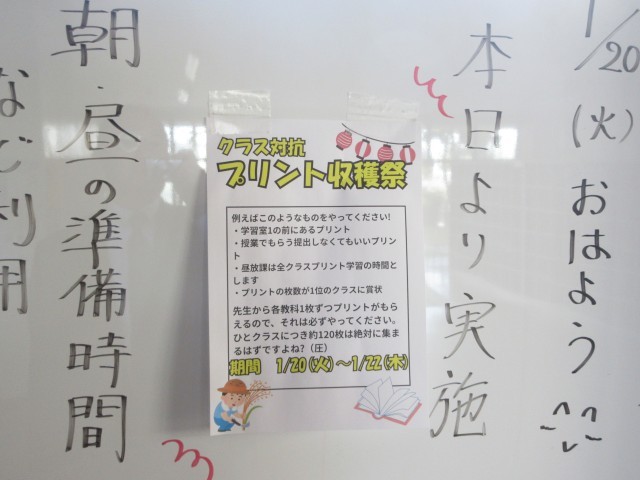 1/20(火)おはよう
本日より実施
クラス対抗
プリント収穫祭
例えばこのようなものをやってください!
・学習室1の前にあるプリント
・授業でもらう提出しなくてもいいプリ
ント
・昼放課は全クラスプリント学習の時間と
します
・プリントの枚数が1位のクラスに賞状
先生から各教科1枚ずつプリントがもら
えるので、それは必ずやってください。
ひとクラスにつき約120枚は絶対に集ま
るはずですよね?(圧)
期間 1/20(火)~1/22(木)
朝・昼の準備時間
など利用